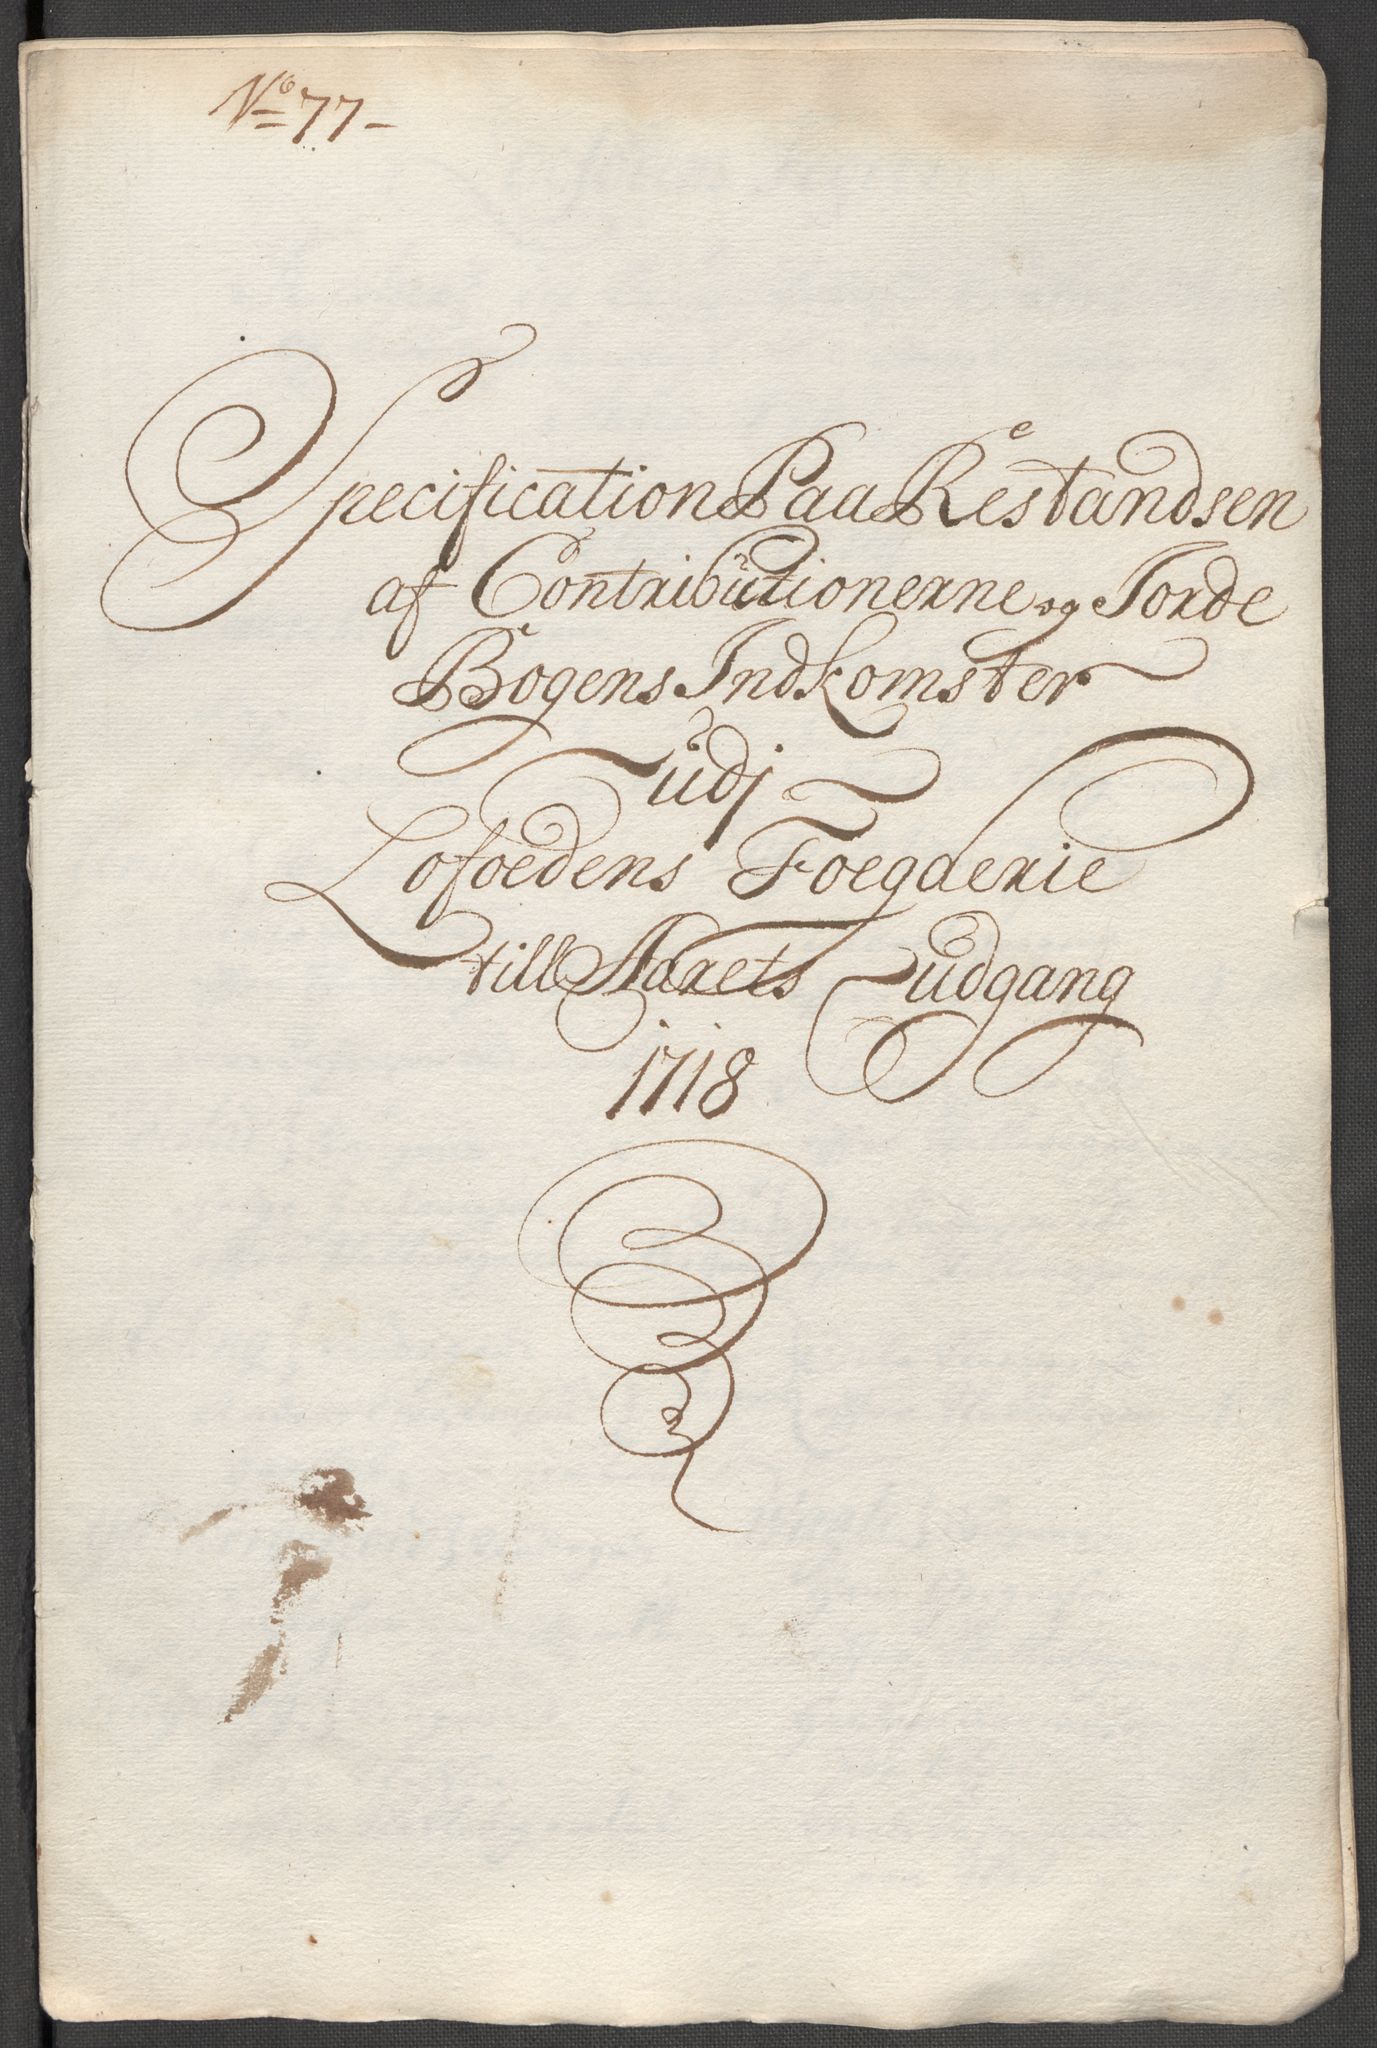 No 77-
Specification Paa Restandsen
af Contributionerne og Jorde
Bogens Indkomster
udj
Lofoedens Foegderie
till Aarets udgang
1718